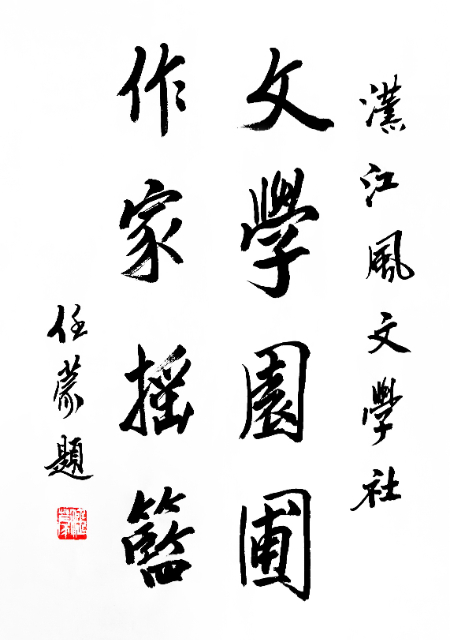 漢江風文學社
文學園圃
作家摇籃
任蒙題